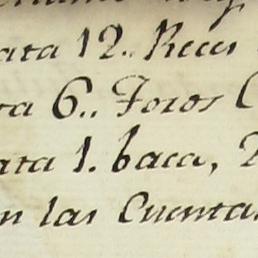 ata 12.. Reces
ta 6.. Foros
ata 1. baca,
n las Cuentas